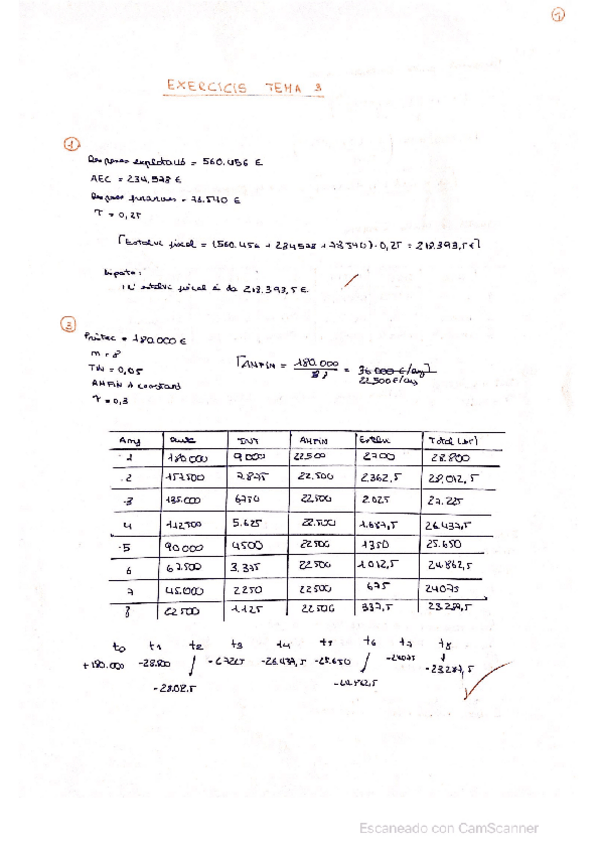 1
EXERCICIS TEMA 3
1
Despeses explotació = 560.456 €
AEC = 234.578 €
Despeses financeres = 78.540 €
T = 0,25
Estalvi fiscal = (560.456 + 234578 + 78540) · 0,25 = 218.393,5€
L'estalvi fiscal és de 218.393,5 €.
2
Préstec = 180.000 €
n = 8
TIN = 0,05
AMFIN → constant
T = 0,3
AMFIN = 180.000 / 8 = 36 000 €/any
22500 €/any
Any INT AMFIN Estalvi Total
1 180000 9000 22500 2700 28.800
2 157500 7.875 22.500 2362,5 28,012,5
3 135.000 6750 22500 2.025 27.225
4 112500 5.625 22.500 1.687,5 26.437,5
5 90000 4500 22500 1350 25.650
6 67500 3.375 22500 1012,5 24.862,5
7 45.000 2250 22500 675 24075
8 22500 1125 22500 337,5 23.287,5
t0 t1 t2 t3 t4 t5 t6 t7 t8
+180.000 -28.800 -27225 -26.437,5 -25.650 -24075 -23287,5
-28.012,5 -24.862,5
Escaneado con CamScanner